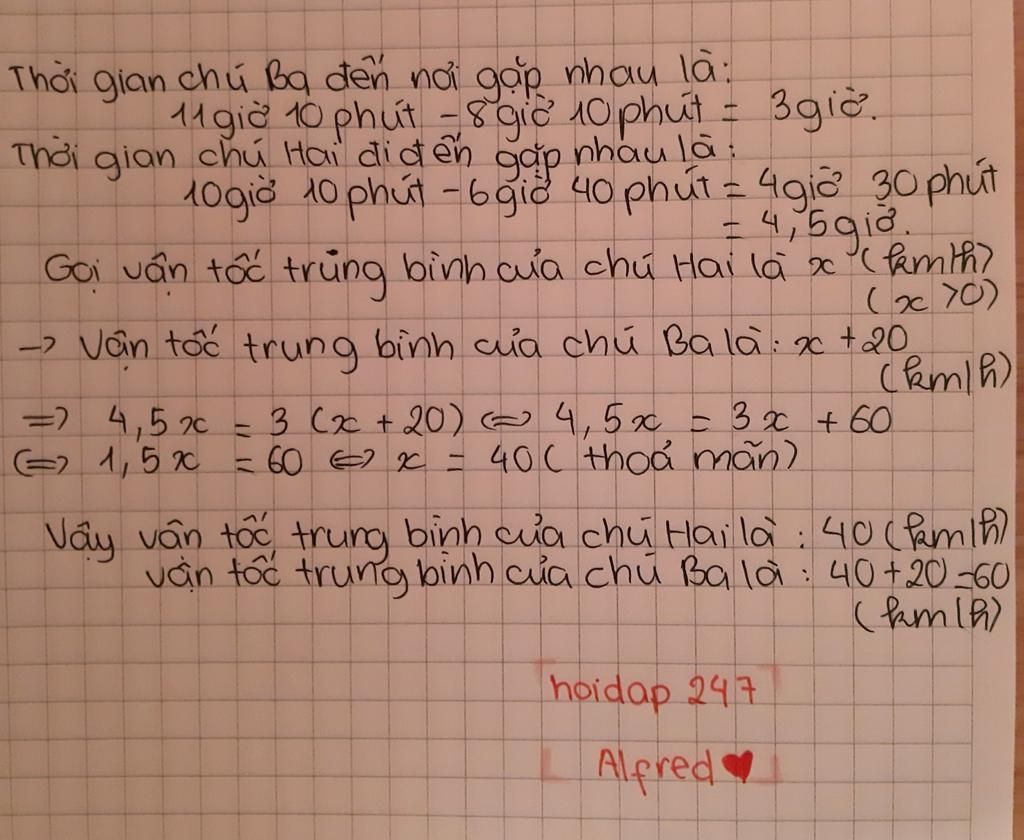 Thời gian chú Ba đến nơi gặp nhau là:
11giờ 10 phút - 8giờ 10phút = 3giờ.
Thời gian chú Hai đi đến gặp nhau là:
10giờ 10 phút - 6giờ 40phút = 4giờ 30phút
= 4,5giờ.
Gọi vận tốc trung bình của chú Hai là x (km/h)
(x >0)
-> Vận tốc trung bình của chú Ba là: x +20
(km/h)
=> 4,5x = 3 (x +20) <=> 4,5x = 3x + 60
<=> 1,5x = 60 <=> x = 40( thoả mãn)
Vậy vận tốc trung bình của chú Hai là : 40 (km/h)
vận tốc trung bình của chú Ba là : 40+20=60
(km/h)
hoidap 247
Alfred ♥